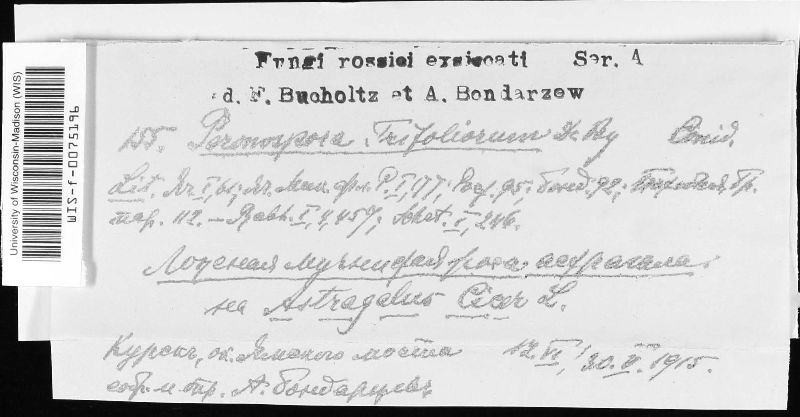 Fungi rossici exsiccati Ser. A
ed. F. Bucholtz et A. Bondarzew
155. Peronospora Trifoliorum De Bary Conid.
Lit. Яч. I, 61; Яч. Мик. фл. Р. I, 77; 95; Бонд. 92; Гр.
пар. 112. — Rabh. I, 4, 457; Schröt. I, 246.
Ложная мучнистая роса астрагала
на Astragalus Cicer L.
Курскъ, ок. Ямского моста 12.VI, 30.V. 1915.
собр. и опр. А. Бондарцевъ
University of Wisconsin-Madison (WIS)
WIS-f-0075196